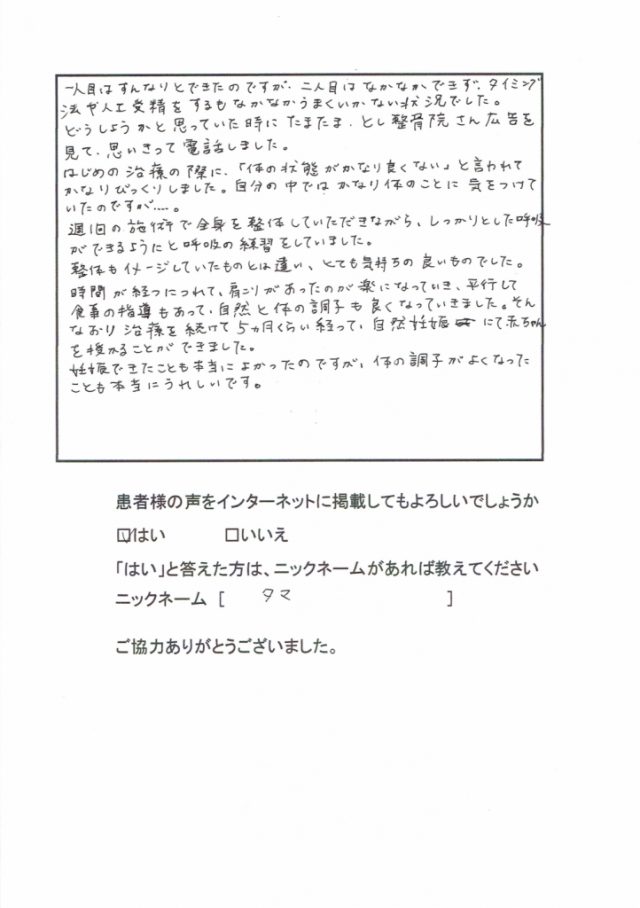 一人目はすんなりとできたのですが、二人目はなかなかできず、タイミング
法や人工受精をするもなかなかうまくいかない状況でした。
どうしようかと思っていた時にたまたま、とし整骨院さん広告を
見て、思いきって電話しました。
はじめの治療の際に、「体の状態がかなり良くない」と言われて
かなりびっくりしました。自分の中ではかなり体のことに気をつけて
いたのですが……。
週1回の施術で全身を整体していただきながら、しっかりとした呼吸
ができるようにと呼吸の練習をしていました。
整体もイメージしていたものとは違い、とても気持ちの良いものでした。
時間が経つにつれて、肩こりがあったのが楽になっていき、平行して
食事の指導もあって、自然と体の調子も良くなっていきました。そん
なおり治療を続けて5ヵ月くらい経って、自然妊娠にて赤ちゃん
を授かることができました。
妊娠できたことも本当によかったのですが、体の調子がよくなった
ことも本当にうれしいです。
患者様の声をインターネットに掲載してもよろしいでしょうか
☑はい □いいえ
「はい」と答えた方は、ニックネームがあれば教えてください
ニックネーム [ タマ ]
ご協力ありがとうございました。